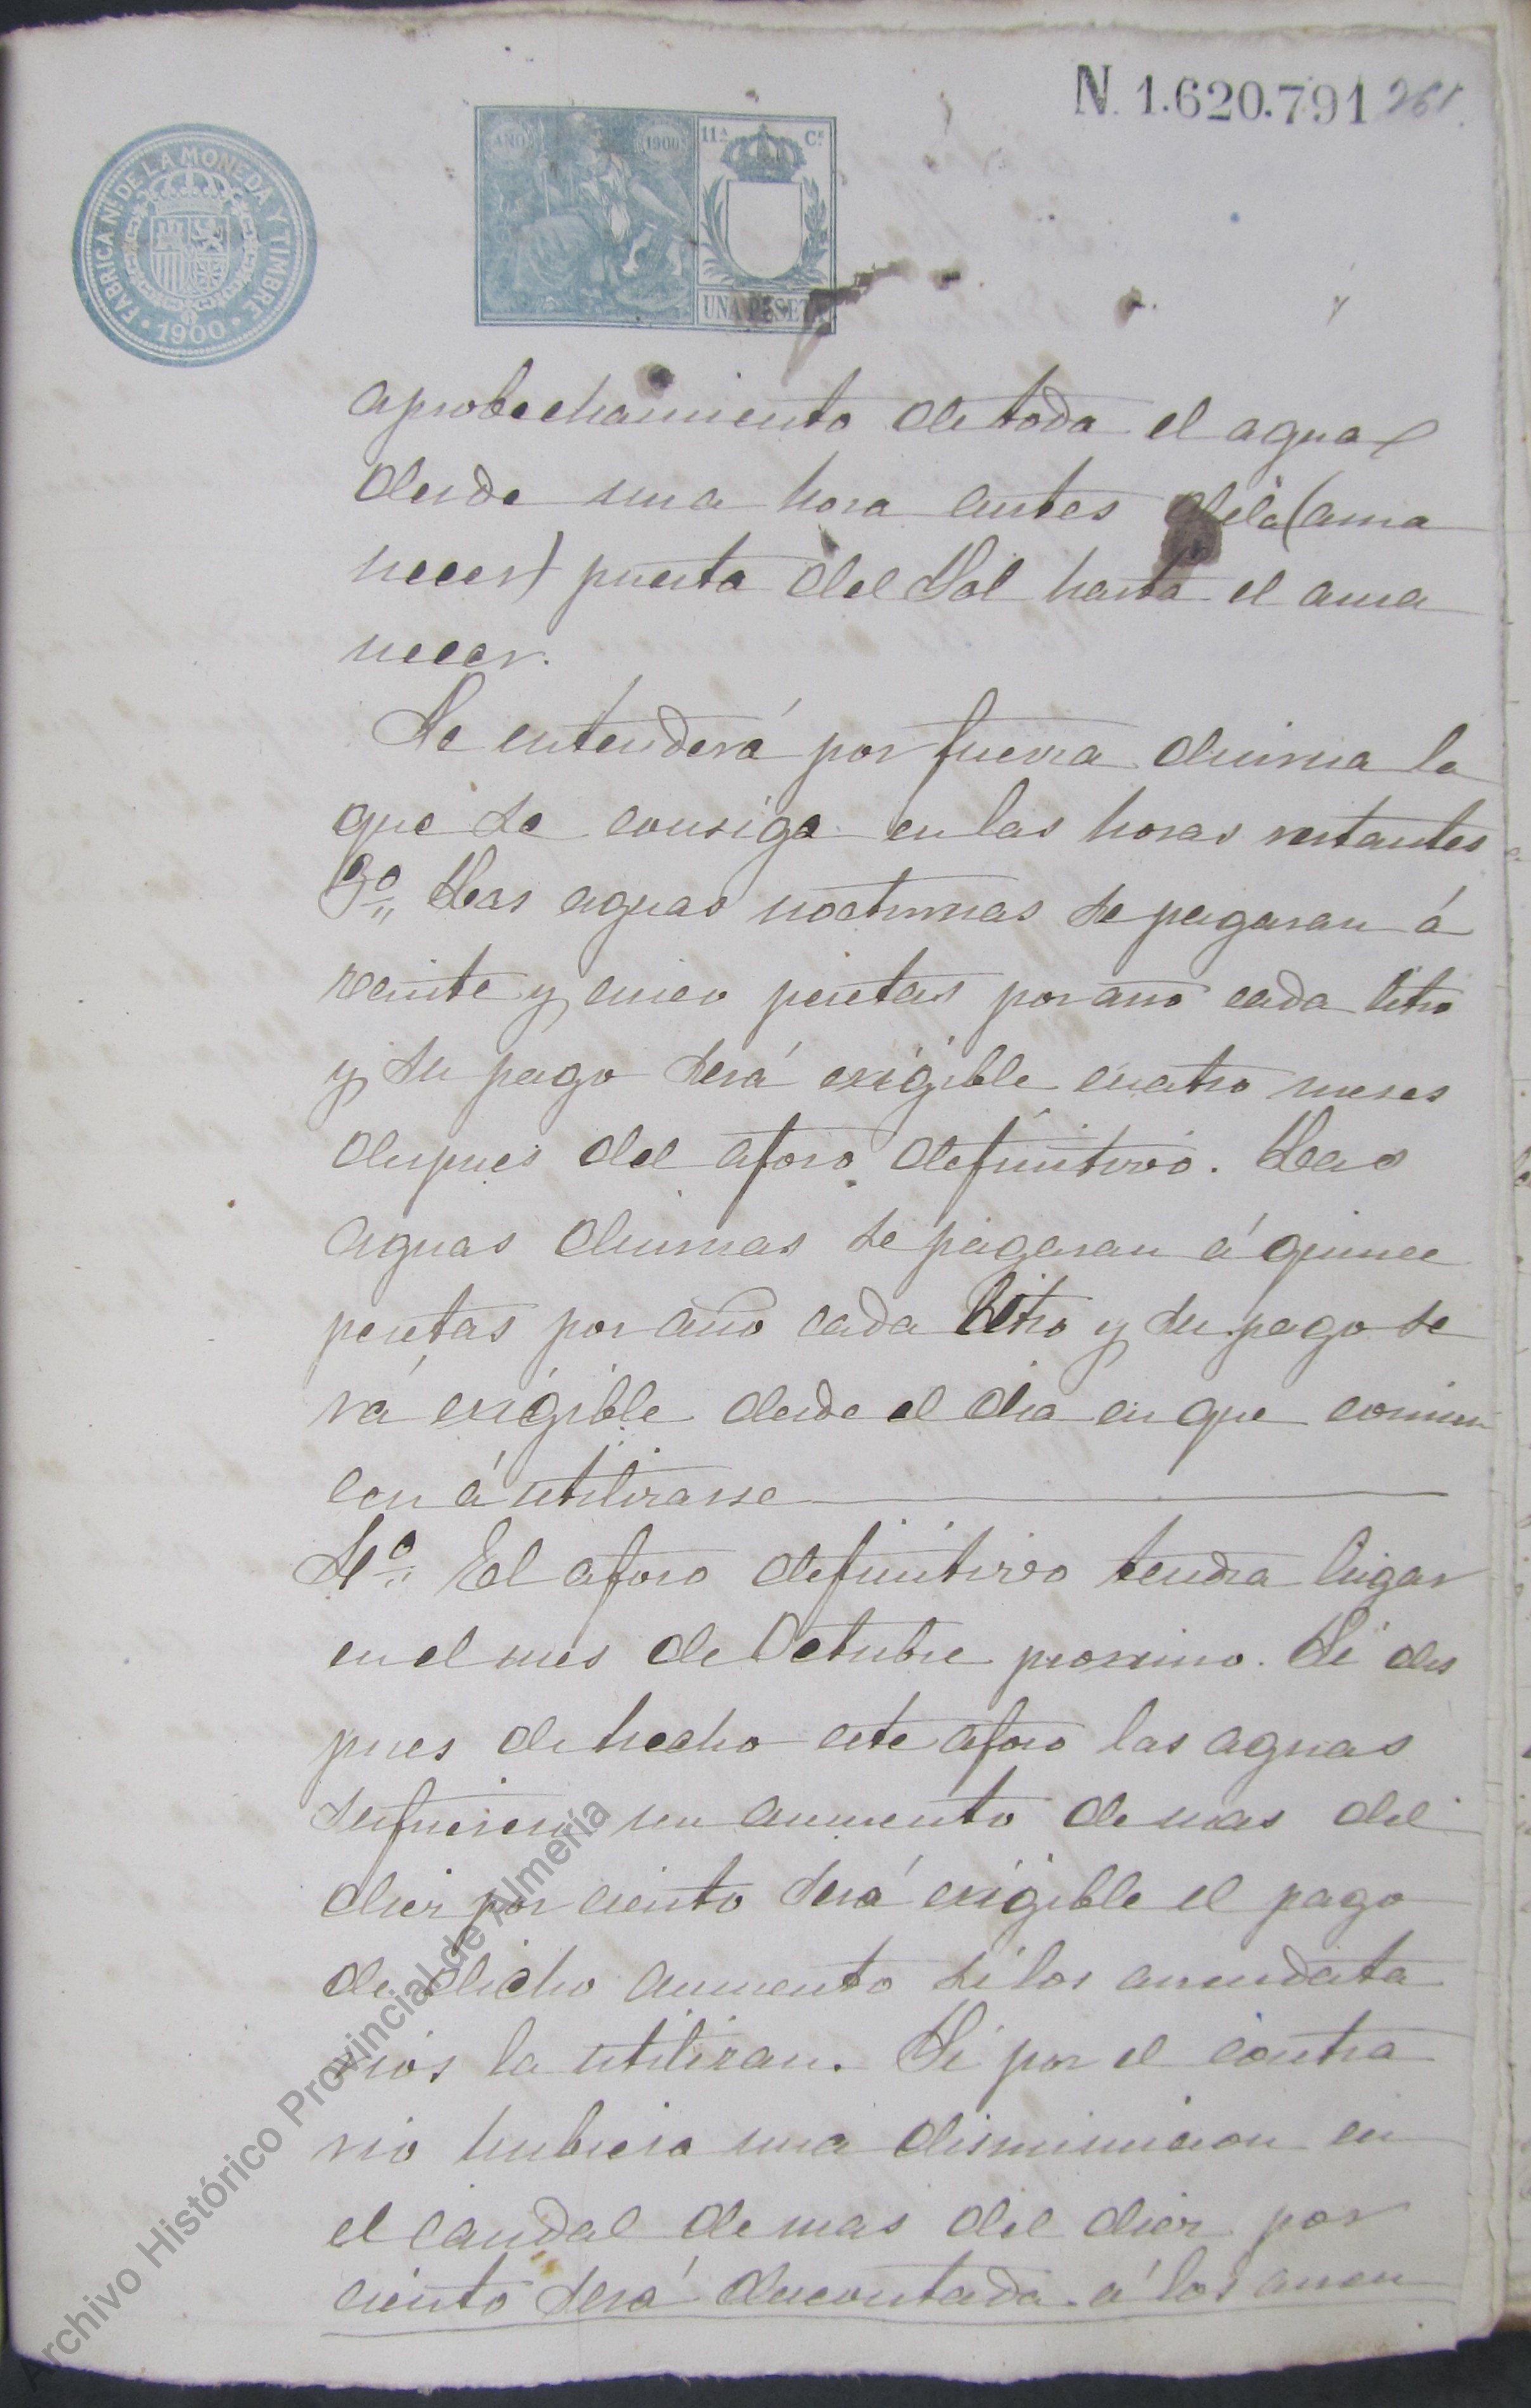 N. 1.620.791 261
FABRICA N. DE LA MONEDA Y TIMBRE
1900
AÑO 1900 11ª Cˢ
UNA PESETA
aprobechamiento de toda el agua
desde una hora antes dela (ama
necer) puesta del Sol hasta el ama
necer.
Se entenderá por fuerza diurna la
que se consiga en las horas restantes
3º Las aguas nocturnas se pagaran á
veinte y cinco pesetas por año cada litro
y su pago será exigible cuatro meses
despues del aforo definitivo. Las
aguas diurnas se pagaran á quince
pesetas por año cada litro y su pago se
rá exigible desde el dia en que comien
cen á utilizarse
4º El aforo definitivo tendra lugar
en el mes de Octubre proximo. Si des
pues de hecho este aforo las aguas
sufrieren un aumento de mas del
diez por ciento será exigible el pago
de dicho aumento si los arrendata
rios la utilizan. Si por el contra
rio hubiera una disminucion en
el caudal de mas del diez por
ciento será descontada á los arren
Archivo Histórico Provincial de Almería